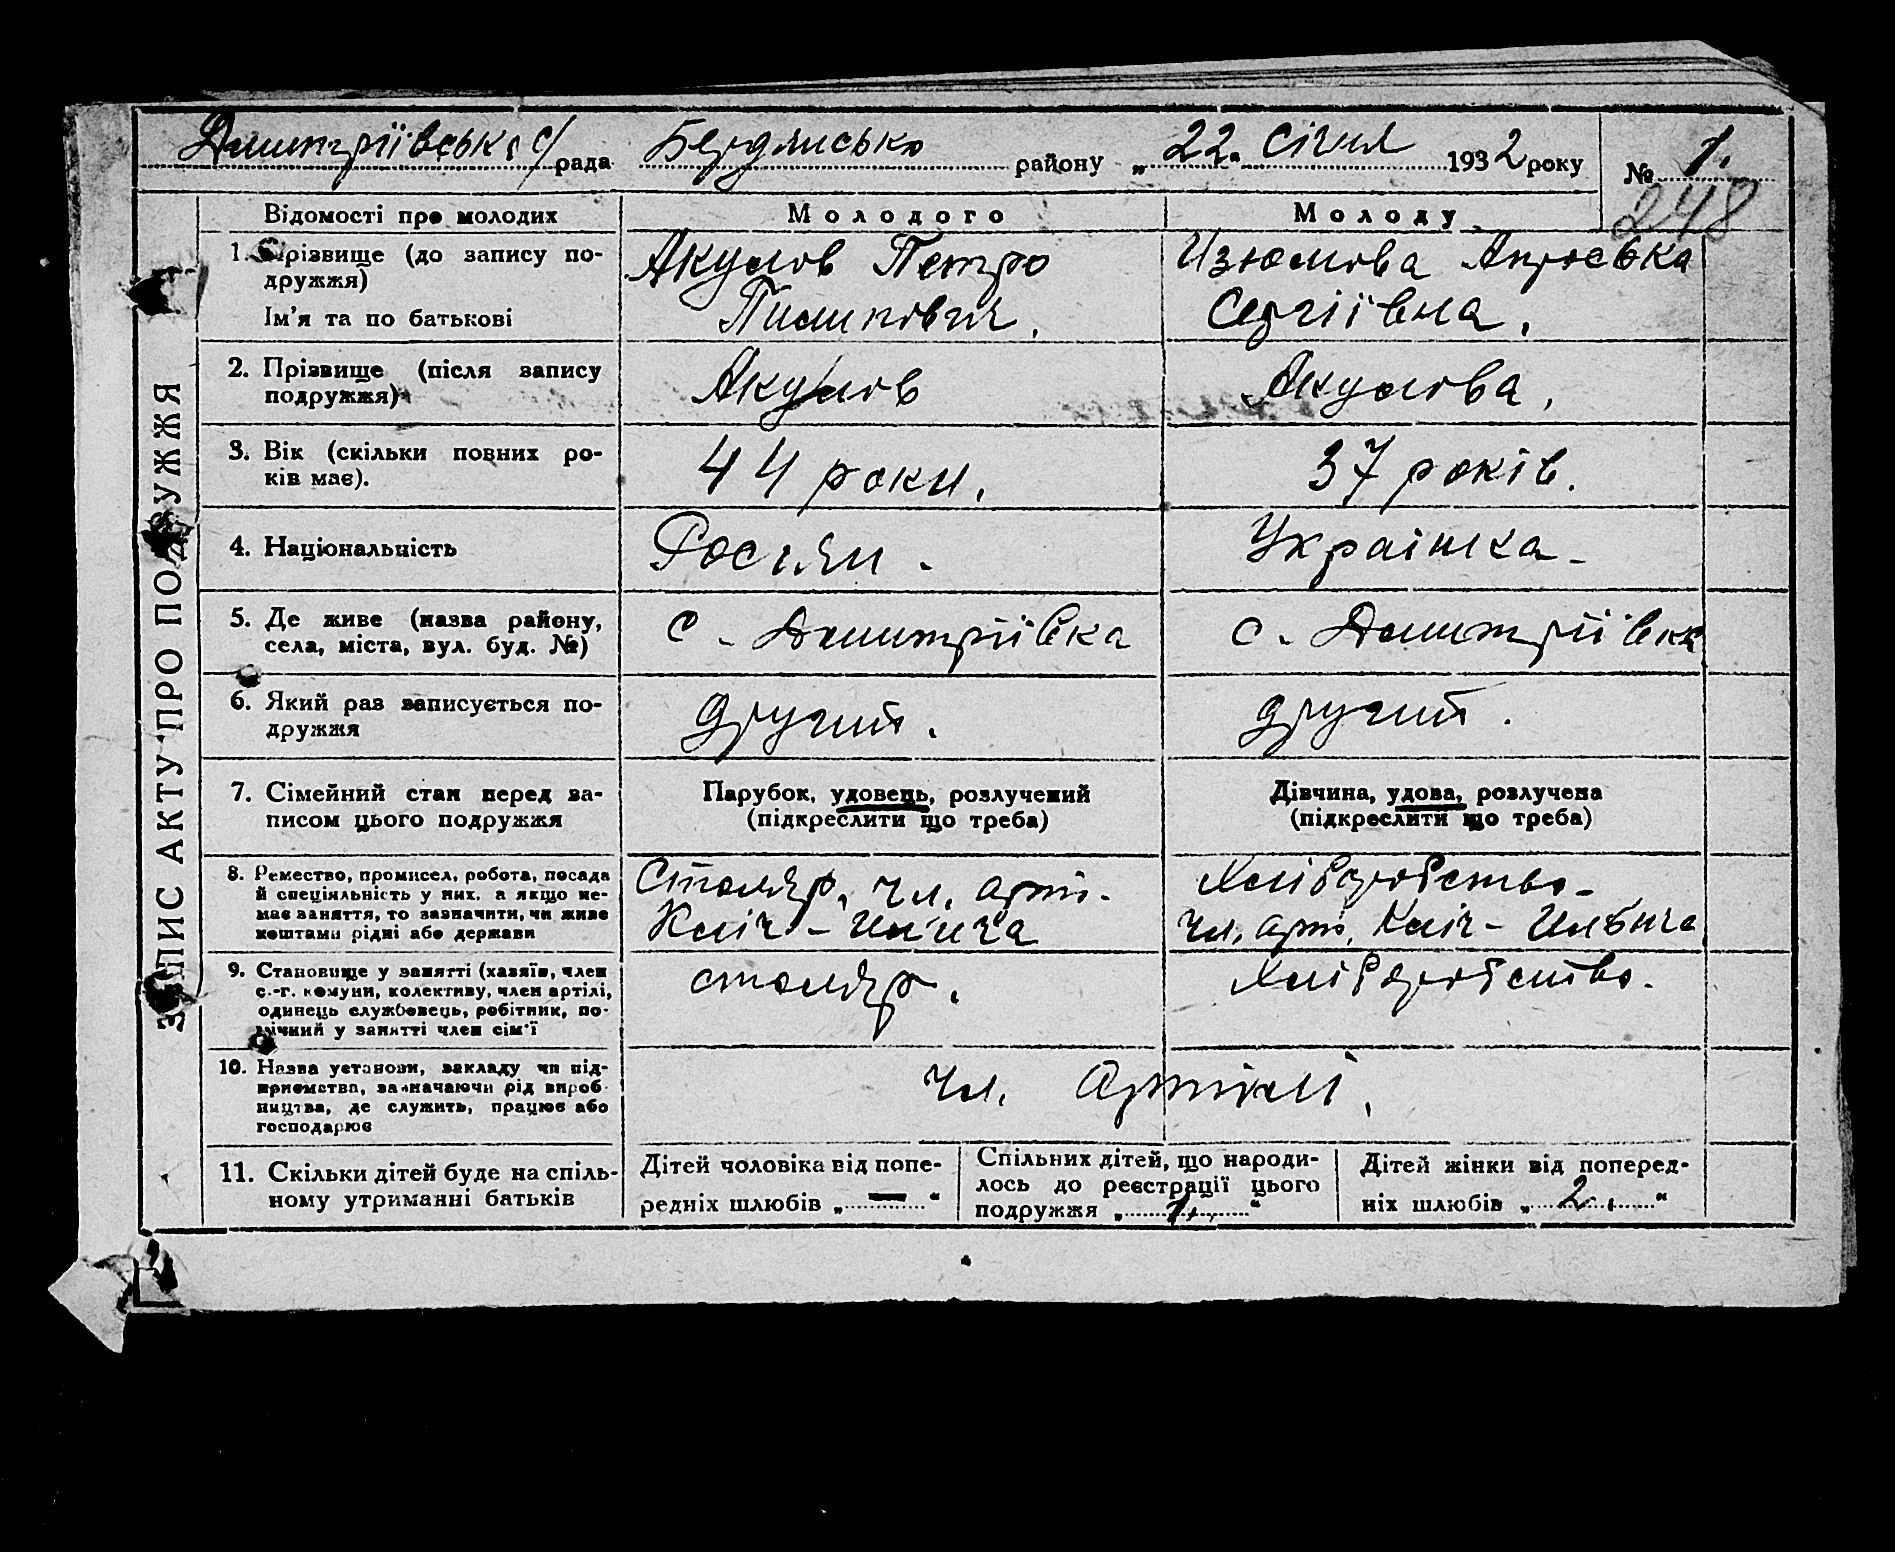 Дмитріївська с/рада Бердянсько району „22“ січня 1932 року № 1.
248
ЗАПИС АКТУ ПРО ПОДРУЖЖЯ
Відомості про молодих Молодого Молоду
1. Прізвище (до запису по-
дружжя)
Ім'я та по батькові
Акулов Петро
Пилипович.
Изюмова Апроська
Сергіївна.
2. Прізвище (після запису
подружжя)
Акулов
Акулова.
3. Вік (скільки повних ро-
ків має).
44 роки.
37 років.
4. Національність
Росіян.
Українка-
5. Де живе (назва району,
села, міста, вул. буд. №)
с - Дмитріївка
с - Дмитріївка
6. Який раз записується по-
дружжя
другий.
другий.
7. Сімейний стан перед за-
писом цього подружжя
Парубок, удовець, розлучений
(підкреслити що треба)
Дівчина, удова, розлучена
(підкреслити що треба)
8. Ремество, промисел, робота, посада
й спеціяльність у них, а якщо не-
має заняття, то зазначити, чи живе
коштами рідні або держави
Столяр, чл. арт.
Кліч-Илича
Хліборобство-
чл. арт. Кліч-Ильича
9. Становище у занятті (хазяїн, член
с.-г. комуни, колективу, член артілі,
одинець службовець, робітник, по-
мічний у занятті член сім'ї
столяр.
Хліборобство.
10. Назва установи, закладу чи під-
приємства, зазначаючи рід вироб-
ництва, де служить, працює або
господарює
чл. артілі.
11. Скільки дітей буде на спіль-
ному утриманні батьків
Дітей чоловіка від попе-
редніх шлюбів „—“
Спільних дітей, що народи-
лось до реєстрації цього
подружжя „1.“
Дітей жінки від поперед-
ніх шлюбів „2.“